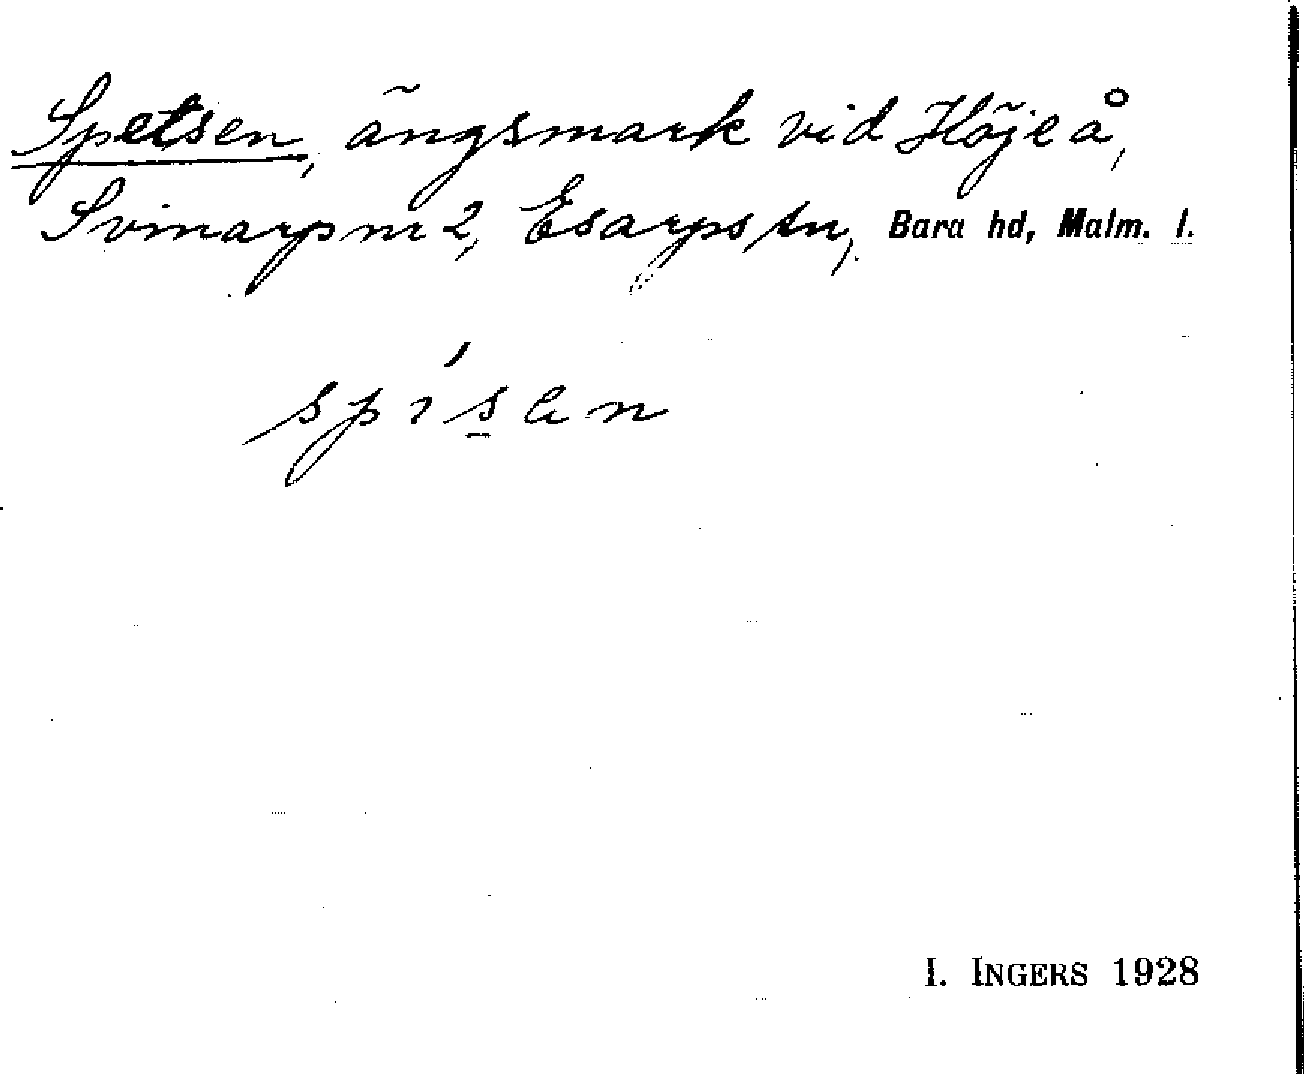 Spetsen, ängsmark vid Höjeå,
Svinarp nr 2, Esarps sn, Bara hd, Malm. l.
spísan
I. INGERS 1928